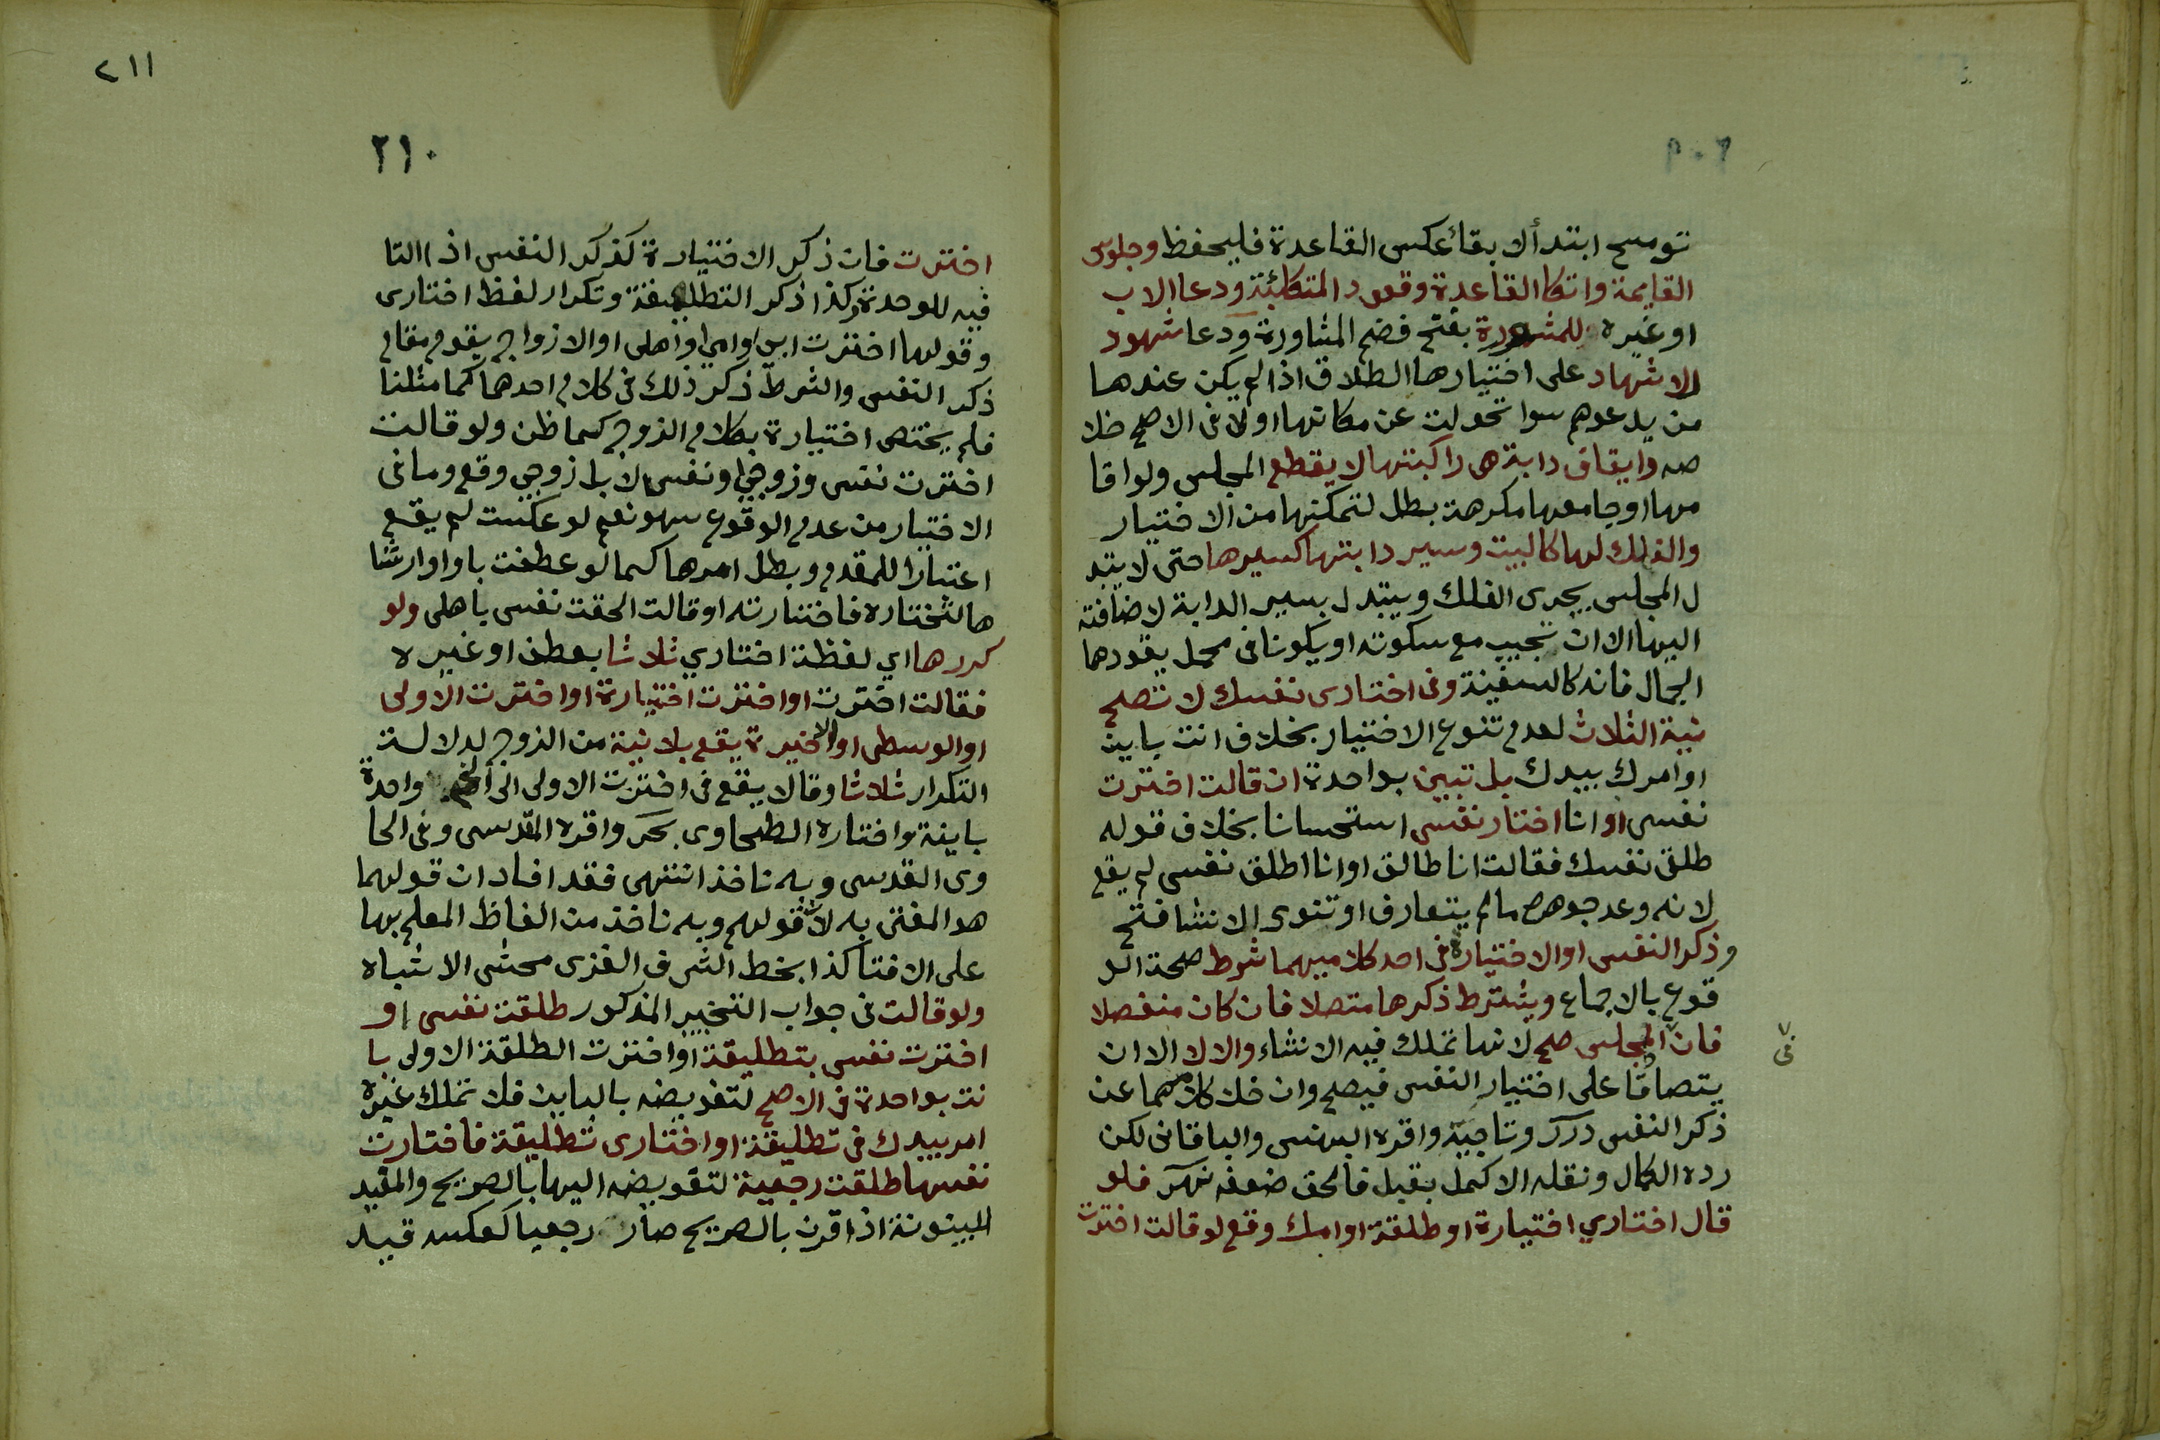 توسح ابتدأ لا بقأ عكس القاعدة فليحفظ وجلوس
القايمة واتكا القاعدة وقعود المتكئة ودعا الاب
او غيره للمشورة بفتح فضم المشاورة ودعا شهود
للاشهاد على اختيارها الطلاق اذا لم يكن عندها
من يدعوهم سوا تحولت عن مكانها اولا فى الاصح خلا
صه وايقاف دابة هى راكبتها لا يقطع المجلس ولو اقا
مها او جامعها مكرهة بطل لتمكنها من الاختيار
والفلك لها كالبيت وسير دابتها كسيرها حتى لا يتبد
ل المجلس بجرى الفلك ويتبدل بسير الدابة لاضافته
اليها الا ان تجيب مع سكوته او يكونا فى محمل يقودها
الجمال فانه كالسفينة وفى اختارى نفسك لا تصح
نية الثلاث لعدم تنوع الاختيار بخلاف انت باين
او امرك بيدك بل تبين بواحدة ان قالت اخترت
نفسى او انا اختار نفسى استحسانا بخلاف قوله
طلقى نفسك فقالت انا طالق او انا اطلق نفسى لم يقع
لانه وعد جوهره ما لم يتعارف او تنوى الانشا فتح
وذكر النفس او الاختيارة فى احد كلاميهما شرط صحة الو
قوع بالاجماع ويشترط ذكرها متصلا فان كان منفصلا
فان المجلس صح لانها تملك فيه الانشاء والا لا الا ان
فى
يتصادقا على اختيار النفس فيصح وان خلا كلامهما عن
ذكر النفس درر وتاجية واقره البهنسى والباقانى لكن
رده الكمال ونقله الاكمل بقيل فالحق ضعفه نهر فلو
قال اختاري اختيارة او طلقة او امك وقع لو قالت اخترت
٢١١
٢١٠
اخترت فان ذكر الاختيارة كذكر النفس اذ التا
فيه للوحدة وكذا ذكر التطليقة وتكرار لفظ اختارى
وقولها اخترت ابى او امى او اهلى او الازواج يقوم مقام
ذكر النفس والشرط ذكر ذلك فى كلام احدهما كما مثلنا
فلم يختص اختيارة بكلام الزوج كما ظن ولو قالت
اخترت نفسى وزوجى او نفسى لا بل زوجى وقع وما فى
الاختيار من عدم الوقوع سهو نعم لو عكست لم يقع
اعتبارا للمقدم وبطل امرها كما لو عطفت باو او ارشا
ها لتختاره فاختارته او قالت الحقت نفسى باهلى ولو
كررها اي لفظة اختاري ثلاثا بعطف او غيره
فقالت اخترت او اخترت اختيارة او اخترت الاولى
او الوسطى او الاخيرة يقع بلا نية من الزوج لدلالة
التكرار ثلاثا وقالا يقع فى اخترت الاولى الى اخره واحدة
باينة واختاره الطحاوى بحر واقره المقدسى وفى الحا
وى القدسى وبه ناخذ انتهى فقد افاد ان قولهما
هو المفتى به لان قولهم وبه ناخذ من الفاظ المعلم بها
على الافتا كذا بخط الشرف الغزى محشى الاشباه
ولو قالت فى جواب التخيير المذكور طلقت نفسى او
اخترت نفسى بتطليقة او اخترت الطلقة الاولى با
نت بواحدة فى الاصح لتفويضه بالباين فلا تملك غيره
امر بيدك فى تطليقة او اختارى تطليقة فاختارت
نفسها طلقت رجعية لتفويضه اليها بالصريح والمقيد
البينونة اذا قرن بالصريح صار رجعيا كعكسه قيد